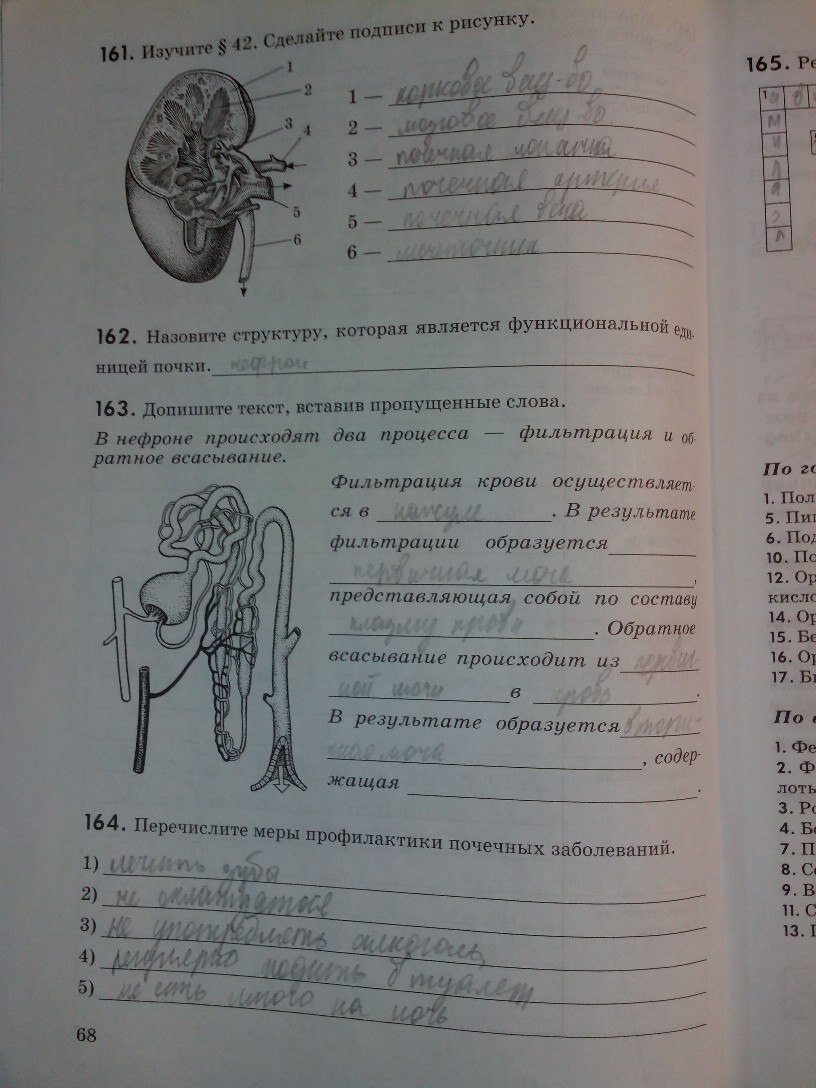 161. Изучите § 42. Сделайте подписи к рисунку.
1
2
3
4
5
6
1 — корковое вещ-во
2 — мозговое вещ-во
3 — почечная лоханка
4 — почечная артерия
5 — почечная вена
6 — мочеточник
162. Назовите структуру, которая является функциональной еди-
ницей почки. нефрон
163. Допишите текст, вставив пропущенные слова.
В нефроне происходят два процесса — фильтрация и об-
ратное всасывание.
Фильтрация крови осуществляет-
ся в капсуле . В результате
фильтрации образуется
первичная моча ,
представляющая собой по составу
плазму крови . Обратное
всасывание происходит из первич-
ной мочи в кровь .
В результате образуется втори-
чная моча , содер-
жащая .
164. Перечислите меры профилактики почечных заболеваний.
1) лечить зубы
2) не охлаждаться
3) не употреблять алкоголь,
4) регулярно ходить в туалет
5) не есть много на ночь
68
165. Ре
1
По го
1. Пол
5. Пи
6. Под
10. По
12. Ор
кисло
14. Ор
15. Бе
16. Ор
17. Би
По в
1. Фе
2. Ф
лоты
3. Ро
4. Бо
7. П
8. Со
9. В
11. С
13. П